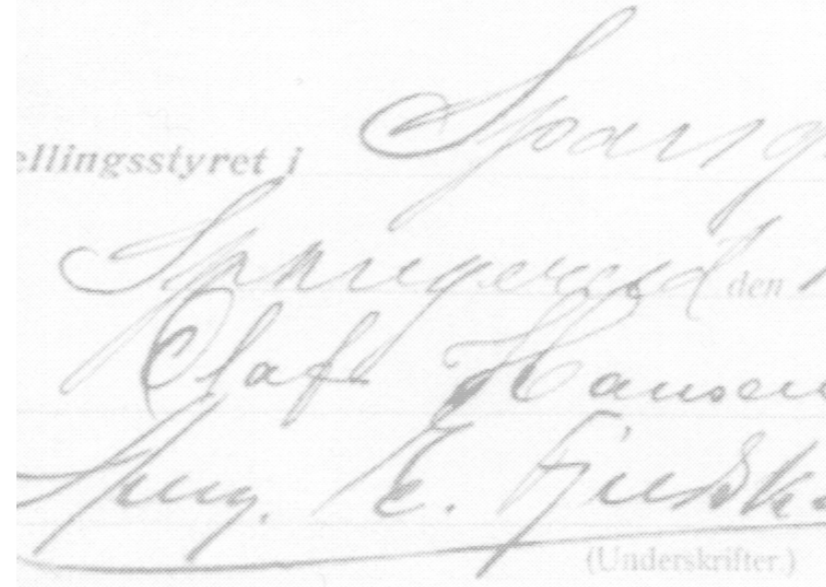 ellingsstyret i Spang
Spangereid den
Olaf Hansen
E.
(Underskrifter.)